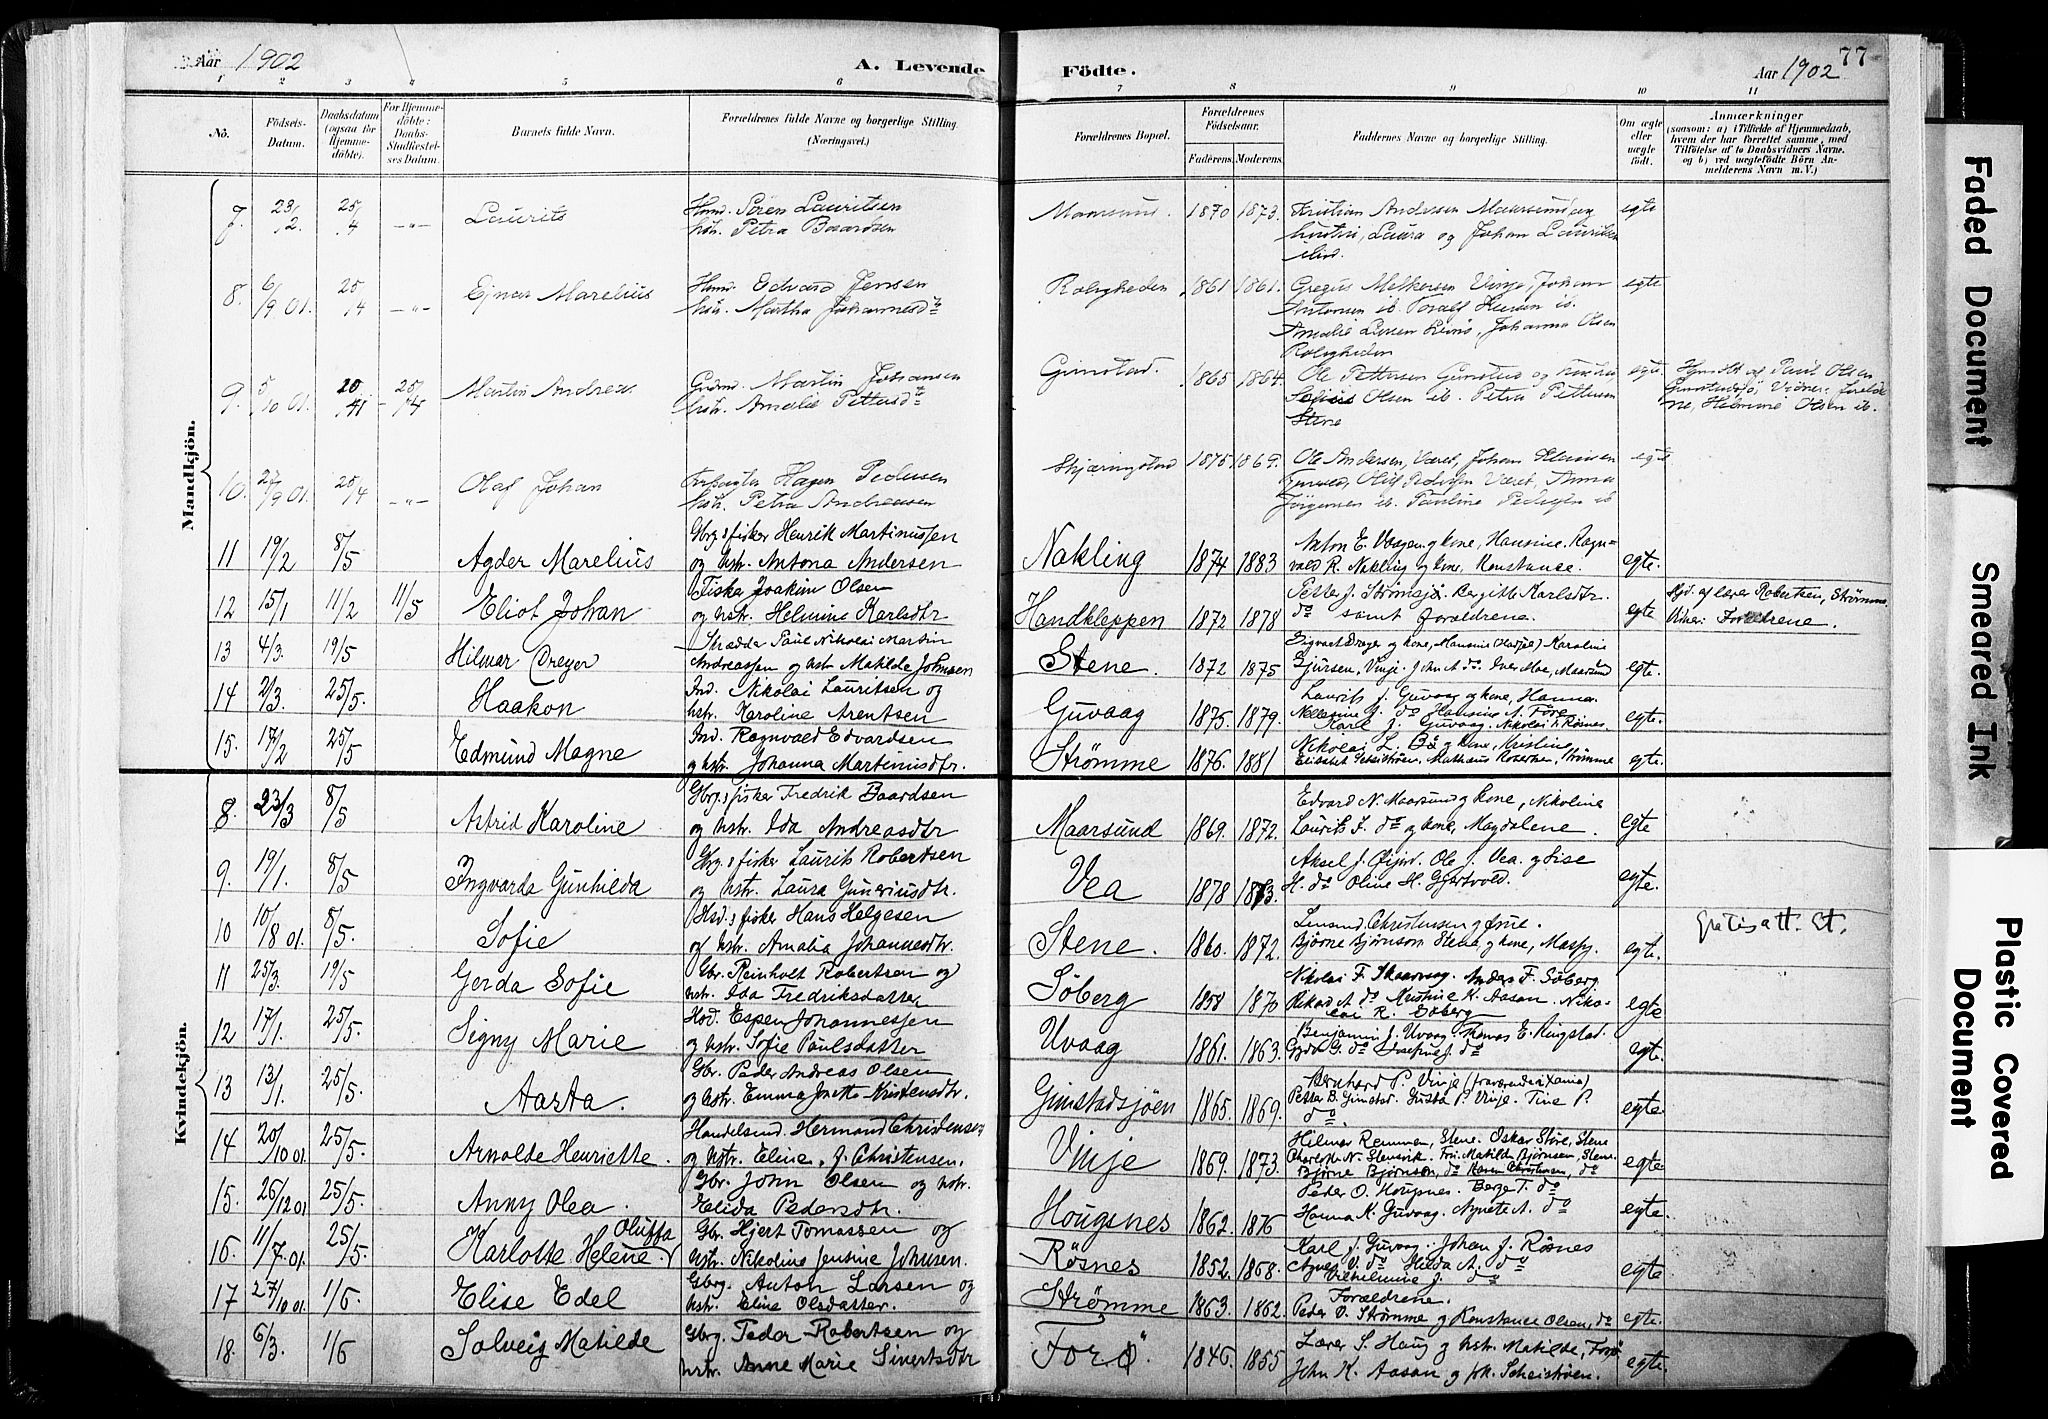 Aar 1902
A. Levende
Födte.
77
Aar 1902
1 2 3 4 5 6 7 8 9 10 11
No.
Födsels-
Datum.
Daabsdatum
(ogsaa for
Hjemme-
döbte).
For Hjemme-
döbte:
Daabs-
Stadfæstel-
ses Datum.
Barnets fulde Navn.
Forældrenes fulde Navne og borgerlige Stilling
(Næringsvei.)
Forældrenes Bopæl.
Forældrenes
Födselsaar.
Faderens. Moderens.
Faddernes Navne og borgerlige Stilling.
Om ægte
eller
uægte
födt.
Anmærkninger
(saasom: a) i Tilfælde af Hjemmedaab,
hvem der har forrettet samme, med
Tilföielse af to Daabsvidners Navne.
og b) ved uægtefödte Börn An-
melderens Navn m. V.)
Mandkjön.
7. 23/2. 25/4 -"- Laurits
Hmd. Sören Lauritsen
hstr. Petra Baardsen
Maarsund. 1870 1873. Kristian Andersen Maarsund og
hustru, Laura og Johan Lauritsen
egte
8. 6/9 01. 25/4 -"- Ejnar Marelius
Hmd. Edvard Jensen
hstr. Martha Johannesd
Roligheden 1861 1861. Gregus Melkersen Vinje, Johan
Antonsen ib.
Amalie Johanna Olsen
Roligheden
egte
9. 5/10 01. 25/4 Martin Andreas
Martin Johansen
hstr. Amalie Pettersd
Gimstad. 1865 1864. Ole Pettersen Gimstad og
Olsen ib. Petra Pettersen
Stene
egte. af Paul Olsen
Helmine Olsen ib.
10. 27/9 01. 25/4 -"- Olaf Johan
Forpagter Hagen Pedersen
hstr. Petra Andreasen
Skjæringstad 1875 1869. Ole Andersen, Været, Johan
Været, Anna
Jörgensen ib. Pauline Pedersen ib
egte
11 19/2 8/5 Agder Marelius
Gbrg. & fisker Henrik Martinussen
og hstr. Antona Andersen
Nakling 1874 1883 Anton E. Vaagen og kone, Hansine. Ragn=
vald R. Nakling og kone, Konstance.
egte.
12 15/1 11/2 11/5 Eliot Johan
Fisker Joakim Olsen
og hstr. Helmine Karlsdtr
Handkleppen 1872 1878 Petter J. Strömsjö. Bergitte Karlsdtr.
do samt forældrene.
egte
Hjd. af lærer Robertsen, Strömme.
Vidner: Forældrene.
13 4/3. 19/5 Hilmar Dreyer
Skrædder Paul Nikolai Martin
Andreassen og hstr Matilde Johnsen
Stene 1872 1875 Sigvart Dreyer og kone, Karoline
Sjursen, Vinje. John A do. Iver Moe, Maarsund
egte.
14 2/3. 25/5. Haakon
Ind. Nikolai Lauritsen og
hstr. Karoline Arentsen
Guvaag 1875. 1879. Laurits J. Guvaag og kone, Hanna
Nellesine J. do Hansine A. Före
Karl J. Guvaag. Nikolai L. Rösnes.
egte.
15. 17/2 25/5 Edmund Magne
Ind. Ragnvald Edvardsen
og hstr. Johanna Martinusdtr.
Strömme 1876. 1881 Nikolai L. Bö og kone, Kristine
Elisabet Strömme
egte.
Kvindekjön.
8. 23/3 8/5 Astrid Karoline
Gbrg. & fisker Fredrik Baardsen
og hstr. Ida Andreasdtr
Maarsund 1869. 1872. Edvard N. Maarsund og kone, Nikoline
Laurits J. do og kone, Magdalene.
egte
9. 19/1. 8/5 Ingvarda Gunhilda
Gbrg. & fisker Laurits Robertsen
og hstr. Laura Guneriusdtr.
Vea 1878 1873. Aksel J. Ole J. Vea. og Lise
H. do Oline H. Gjertvold.
egte.
10 10/18 01. 8/5. Sofie
Hsd. & fisker Hans Helgesen
og hstr. Amalia Johannesdtr.
Stene. 1860. 1872. Christensen og frue.
Björne Björnson Stene, og kone,
egte. Gratis att. St.
11 25/3. 19/5 Gerda Sofie
Gbr. Reinholt Robertsen og
hstr. Ida Fredriksdatter
Söberg 1858 1870 Nikolai F. Skaarvaag. Anders F. Söberg.
Rikard A. do Kristine K. Aasan. Niko-
lai R. Söberg
egte
12 17/1. 25/5. Signy Marie
Hsd. Espen Johannessen
og hstr. Sofie Paulsdatter
Uvaag 1861. 1863. Benjamin J. Uvaag. Thomas E. Ringstad.
Gyda G. do Josefine J. do
egte.
13 13/1. 25/5. Aasta.
Gbr. Peder Andreas Olsen
og hstr. Emma Jonette Kristensdtr.
Gimstadsjöen 1865. 1869. Bernhard P. Vinje
Petra B. Gimstad. Gusta P. Vinje. Tine P.
do.
egte.
14 20/10 01. 25/5. Arnolde Henriette.
Handelsmd. Hermand Christensen
og hstr. Eline, J. Christensen.
Vinje 1869. 1873. Hilmar Remmen, Stene. Oskar Störe, Stene
Charlotte N. Slensvik. Frk. Matilde Björnsen, Stene.
Björne Björnson, do Karen Christensen, do
egte
15. 26/12 01 25/5. Anny Olea.
Gbr. John Olsen og hstr.
Elida Pedersdtr.
Hougsnes 1862. 1876 Peder O. Hougsnes. Berge T. do
Hanna K. Guvaag. Agnete A. do
egte.
16. 11/7. 01. 25/5. Karlotte Helene Oluffa.
Gbr. Hjert Tomassen og
hstr. Nikoline Jentine Johnsen.
Rösnes 1852. 1868. Karl J. Guvaag. Johan J. Rösnes
Agnes V. do Hilda A. do
Vilhelmine J. do
egte
17 27/10 01 1/6. Elise Edel
Gbrg. Anton Larsen og
hstr. Eline Olsdatter.
Strömme 1863. 1862. Forældrene.
Peder O. Strömme og Konstance Olsen, do
egte.
18. 6/3. 1/6 Solveig Matilde
Gbrg. Peder Robertsen og
hstr. Anne Marie Sivertsdtr
Forö 1846. 1855 Lærer S. Haug og hstr. Matilde, Forö
John K. Aasan og frk. Scheistrøen.
egte.
Faded Document
Smeared Ink
Plastic Covered
Document